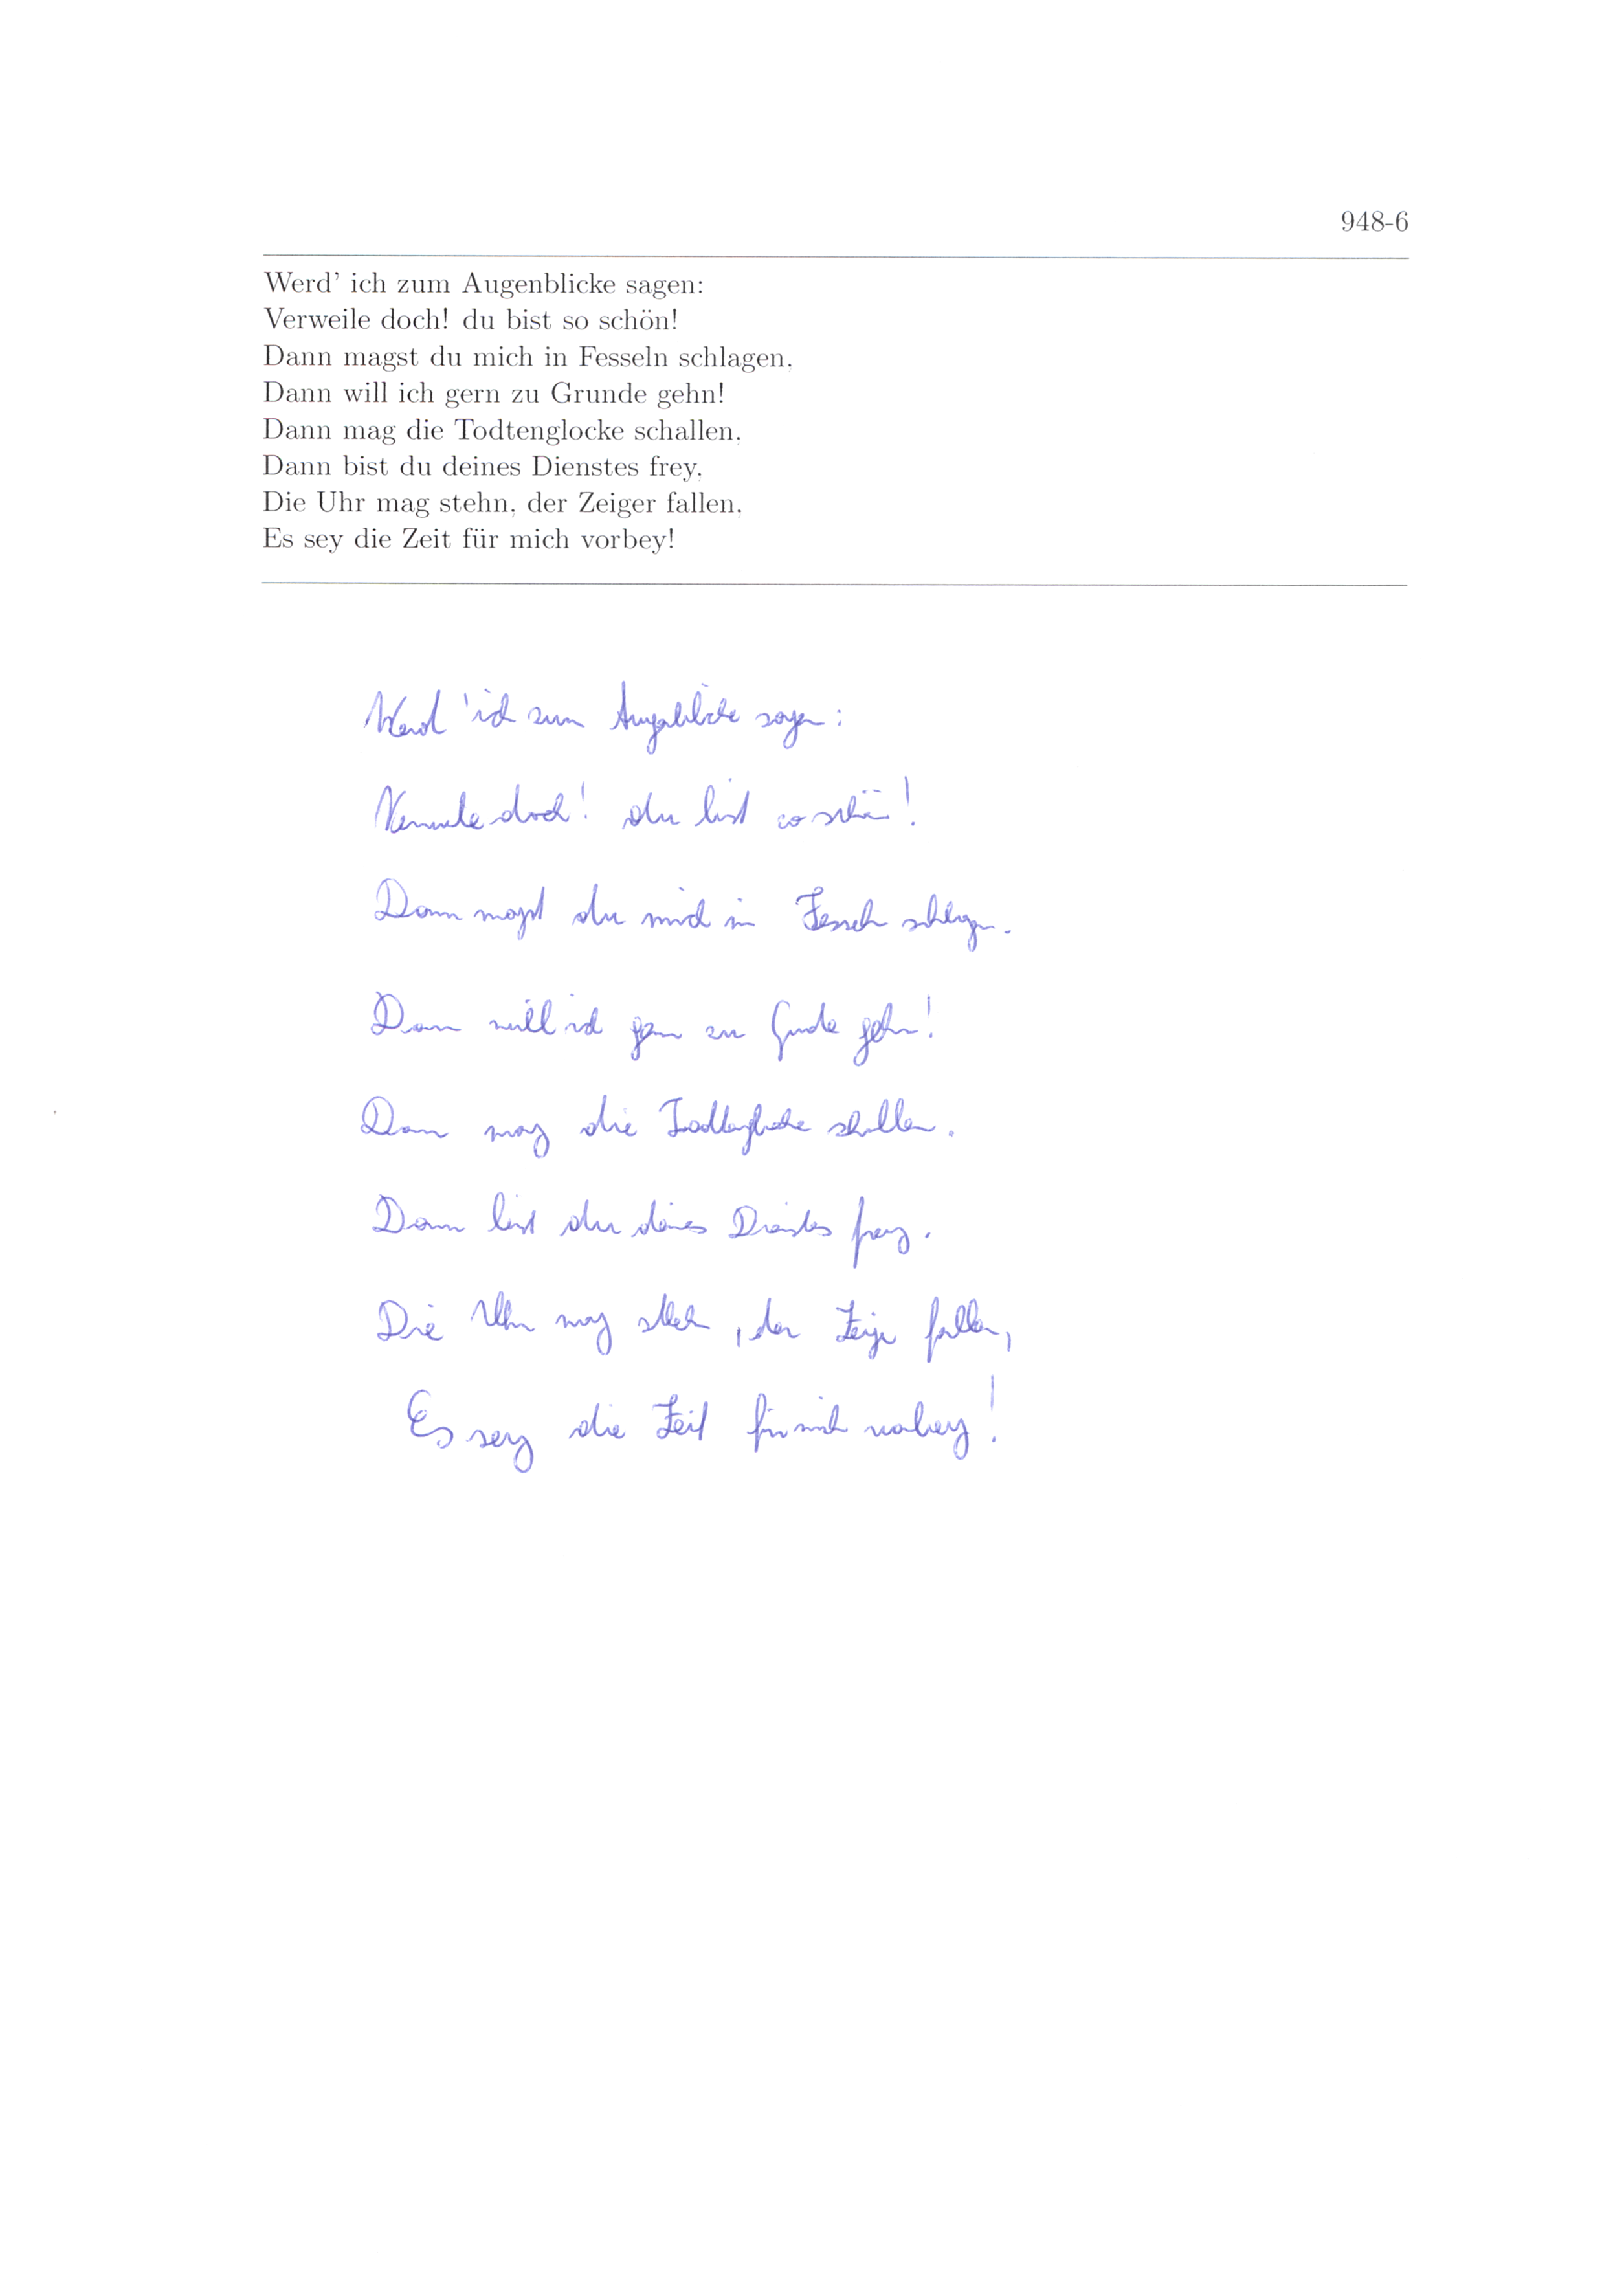 948-6
Werd' ich zum Augenblicke sagen:
Verweile doch! du bist so schön!
Dann magst du mich in Fesseln schlagen,
Dann will ich gern zu Grunde gehn!
Dann mag die Todtenglocke schallen,
Dann bist du deines Dienstes frey,
Die Uhr mag stehn, der Zeiger fallen,
Es sey die Zeit für mich vorbey!
Werd 'ich zum Augenblicke sagen:
Verweile doch! du bist so schön!
Dann magst du mich in Fesseln schlagen.
Dann will ich gern zu Grunde gehn!
Dann mag die Todtenglocke schallen.
Dann bist du deines Dienstes frey.
Die Uhr mag stehn, der Zeiger fallen,
Es sey die Zeit für mich vorbey!